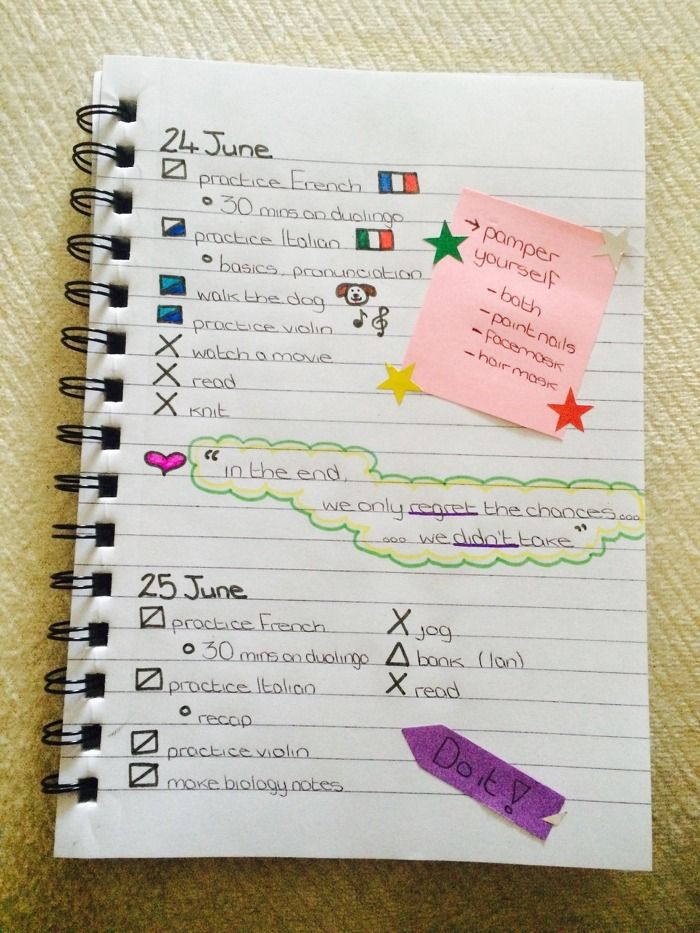 24 June
practice French
30 mins on duolingo
practice Italian
basics, pronunciation
walk the dog
practice violin
X watch a movie
X read
X knit
→ pamper
yourself
- bath
- paint nails
- facemask
- hair mask
“in the end,
we only regret the chances...
... we didn't take”
25 June
practice French
30 mins on duolingo
practice Italian
recap
practice violin
make biology notes
X jog
bank (Ian)
X read
Do it!